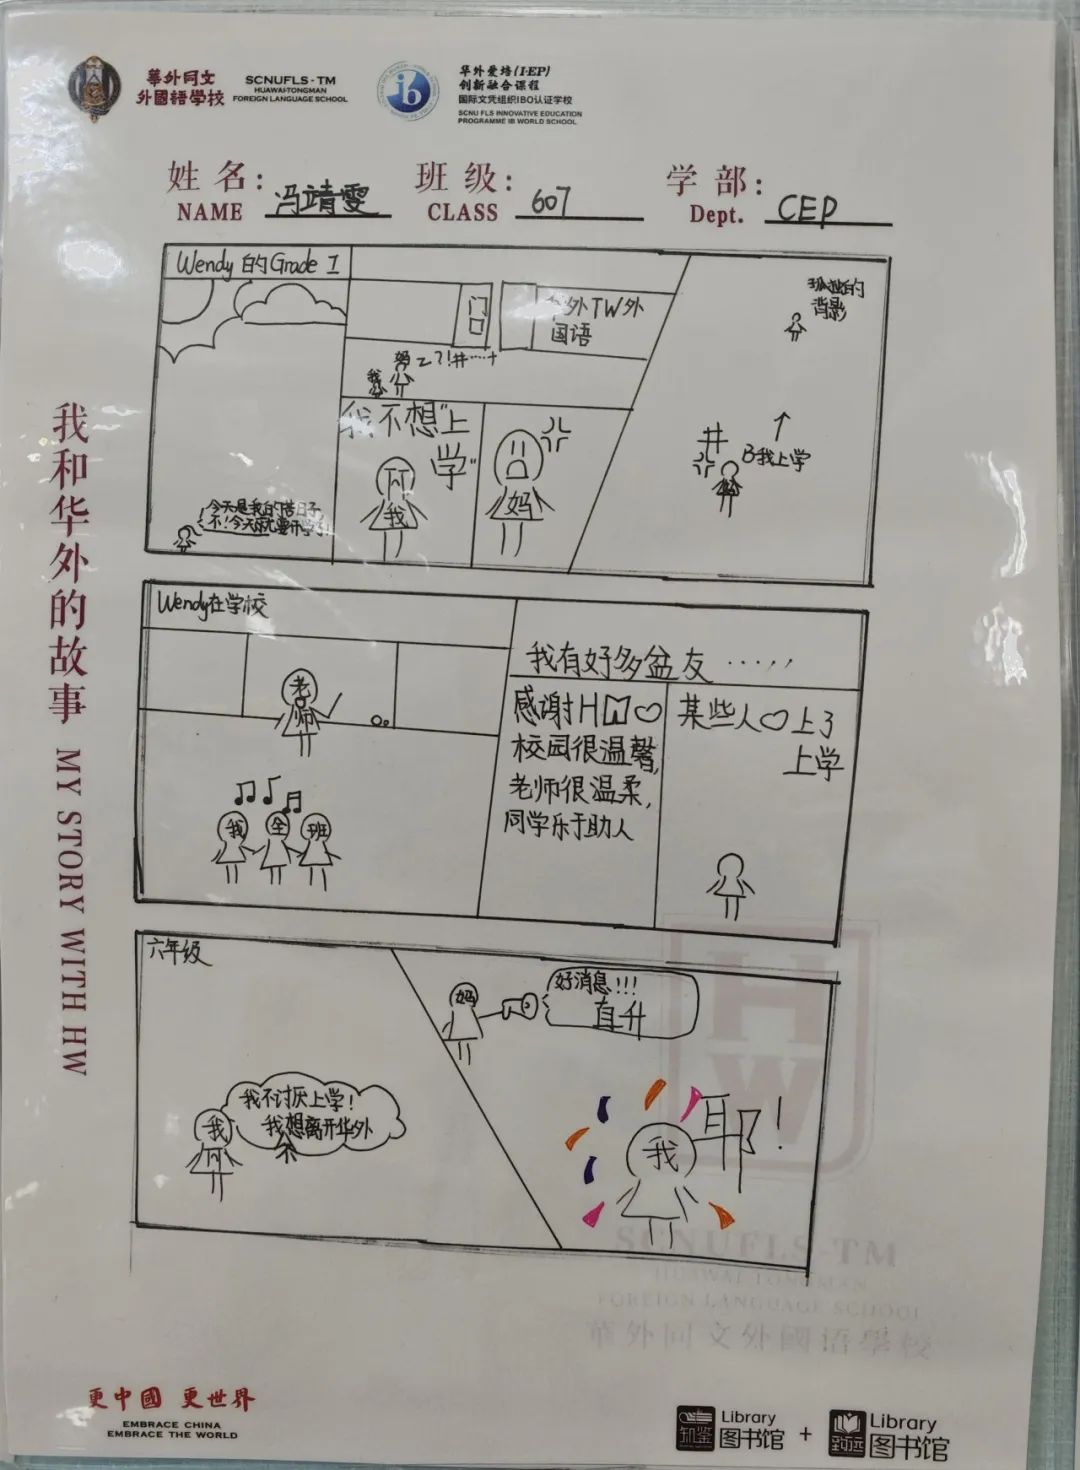 華外同文
外國語學校
SCNUFLS-TM
HUAWAI·TONGMAN
FOREIGN LANGUAGE SCHOOL
ib
华外爱培(I·EP)
创新融合课程
国际文凭组织IBO认证学校
SCNU FLS INNOVATIVE EDUCATION
PROGRAMME IB WORLD SCHOOL
姓名: 冯靖雯
NAME
班级: 607
CLASS
学部: CEP
Dept.
我和华外的故事 MY STORY WITH HW
Wendy的Grade 1
今天是我的苦日子
不!今天就要开学了!
门口
外TW外
国语
妈
我
我不想"上
学"
阿
我
妈
孤独的
背影
井
↑
B我上学
妈
Wendy在学校
老师
我 全 班
我有好多盆友……
感谢HW♡
校园很温馨,
老师很温柔,
同学乐于助人
某些人♡上了
上学
六年级
我不讨厌上学!
我想离开华外
不
我
阿
妈
好消息!!!
直升
我
耶!
HW
SCNUFLS-TM
HUAWAI·TONGMAN
FOREIGN LANGUAGE SCHOOL
華外同文外國語學校
更中國 更世界
EMBRACE CHINA
EMBRACE THE WORLD
知鉴
Library
图书馆
+
致远
Library
图书馆